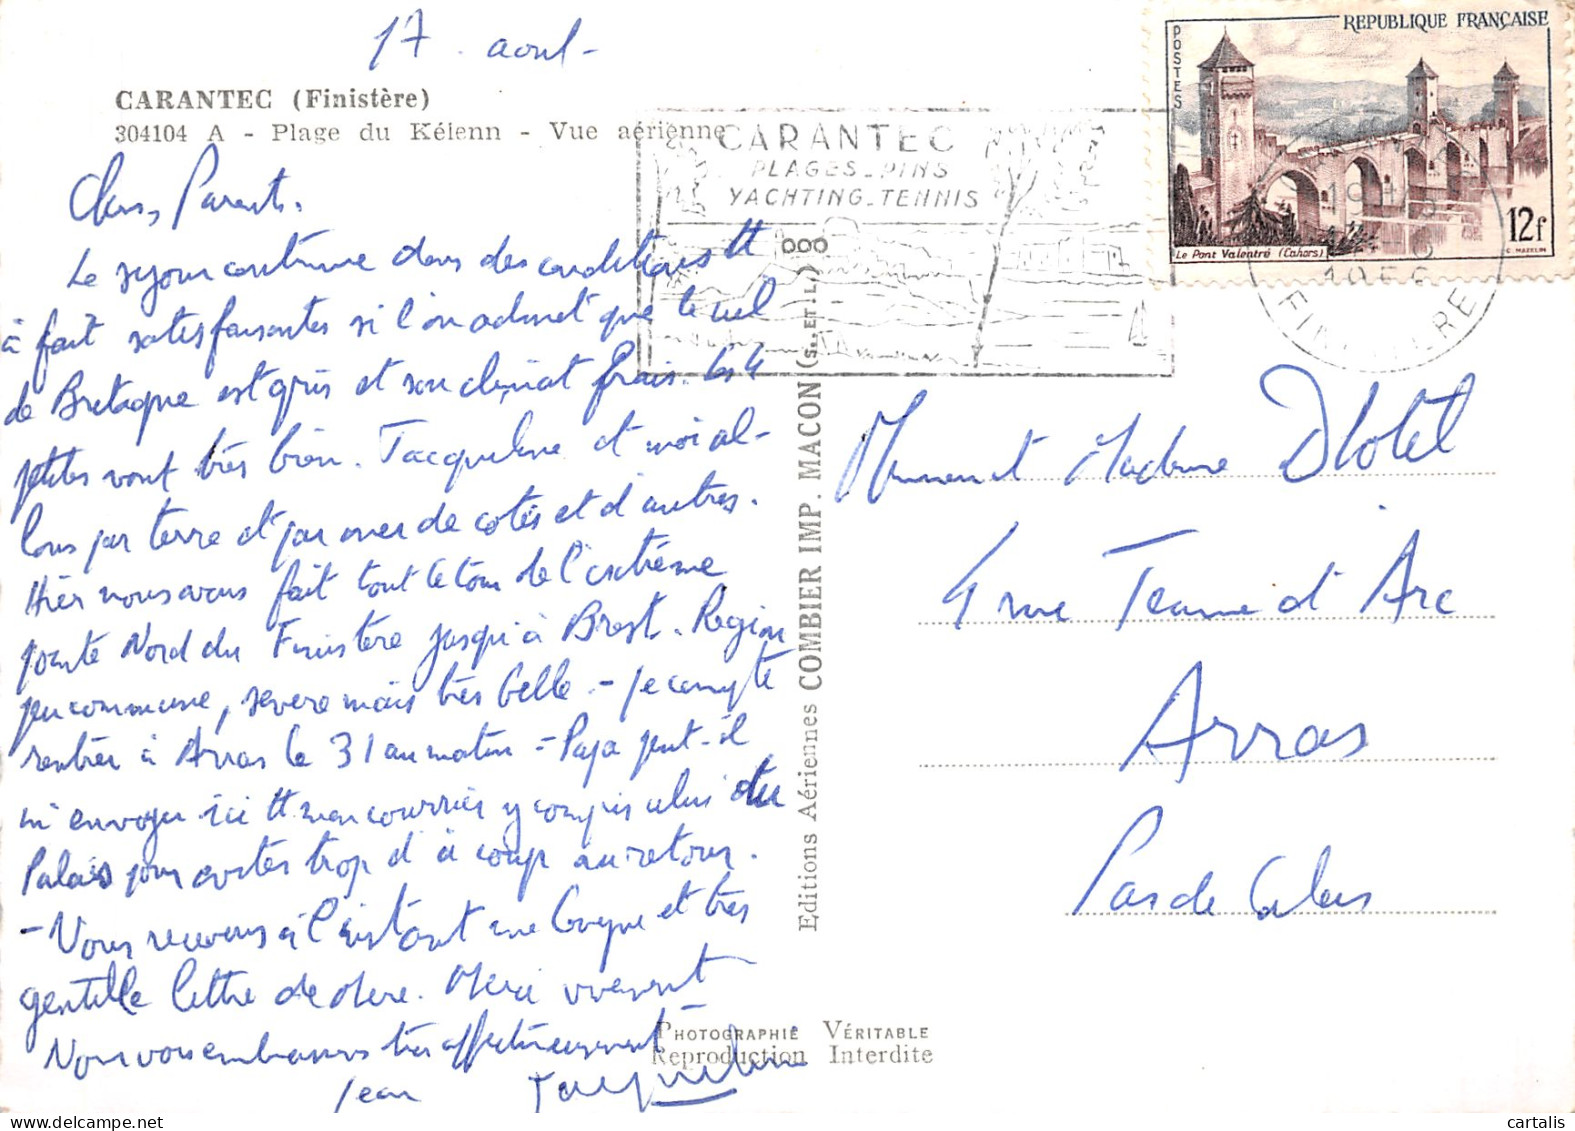 17 août -
CARANTEC (Finistère)
304104 A - Plage du Kélenn - Vue aérienne
Chers Parents.
Le séjour continue dans des conditions tt
à fait satisfaisantes si l'on admet que le ciel
de Bretagne est gris et son climat frais. Les 4
petites vont très bien. Jacqueline et moi al-
lons par terre et par mer de cotés et d'autres.
Hier nous avons fait tout le tour de l'extrême
pointe Nord du Finistère jusqu'à Brest. Region
peu commune, severe mais très belle. - je compte
rentrer à Arras le 31 au matin - Papa peut-il
m'envoyer ici tt mon courrier y compris celui du
Palais pour eviter trop d'à coup au retour.
- Nous recevons à l'instant une longue et très
gentille lettre de Mere. Merci vivement
Nous vous embrassons très affectueusement
Jean Jacqueline
CARANTEC
PLAGES - PINS
YACHTING - TENNIS
REPUBLIQUE FRANÇAISE
POSTES
12f
Le Pont Valentré (Cahors)
C. MAZELIN
19H
1956
FINISTERE
Editions Aériennes COMBIER IMP. MACON (S.-ET-L.)
Monsieur et Madame Dhotel
4 rue Jeanne d'Arc
Arras
Pas de Calais
PHOTOGRAPHIE VÉRITABLE
Reproduction Interdite
cartalis